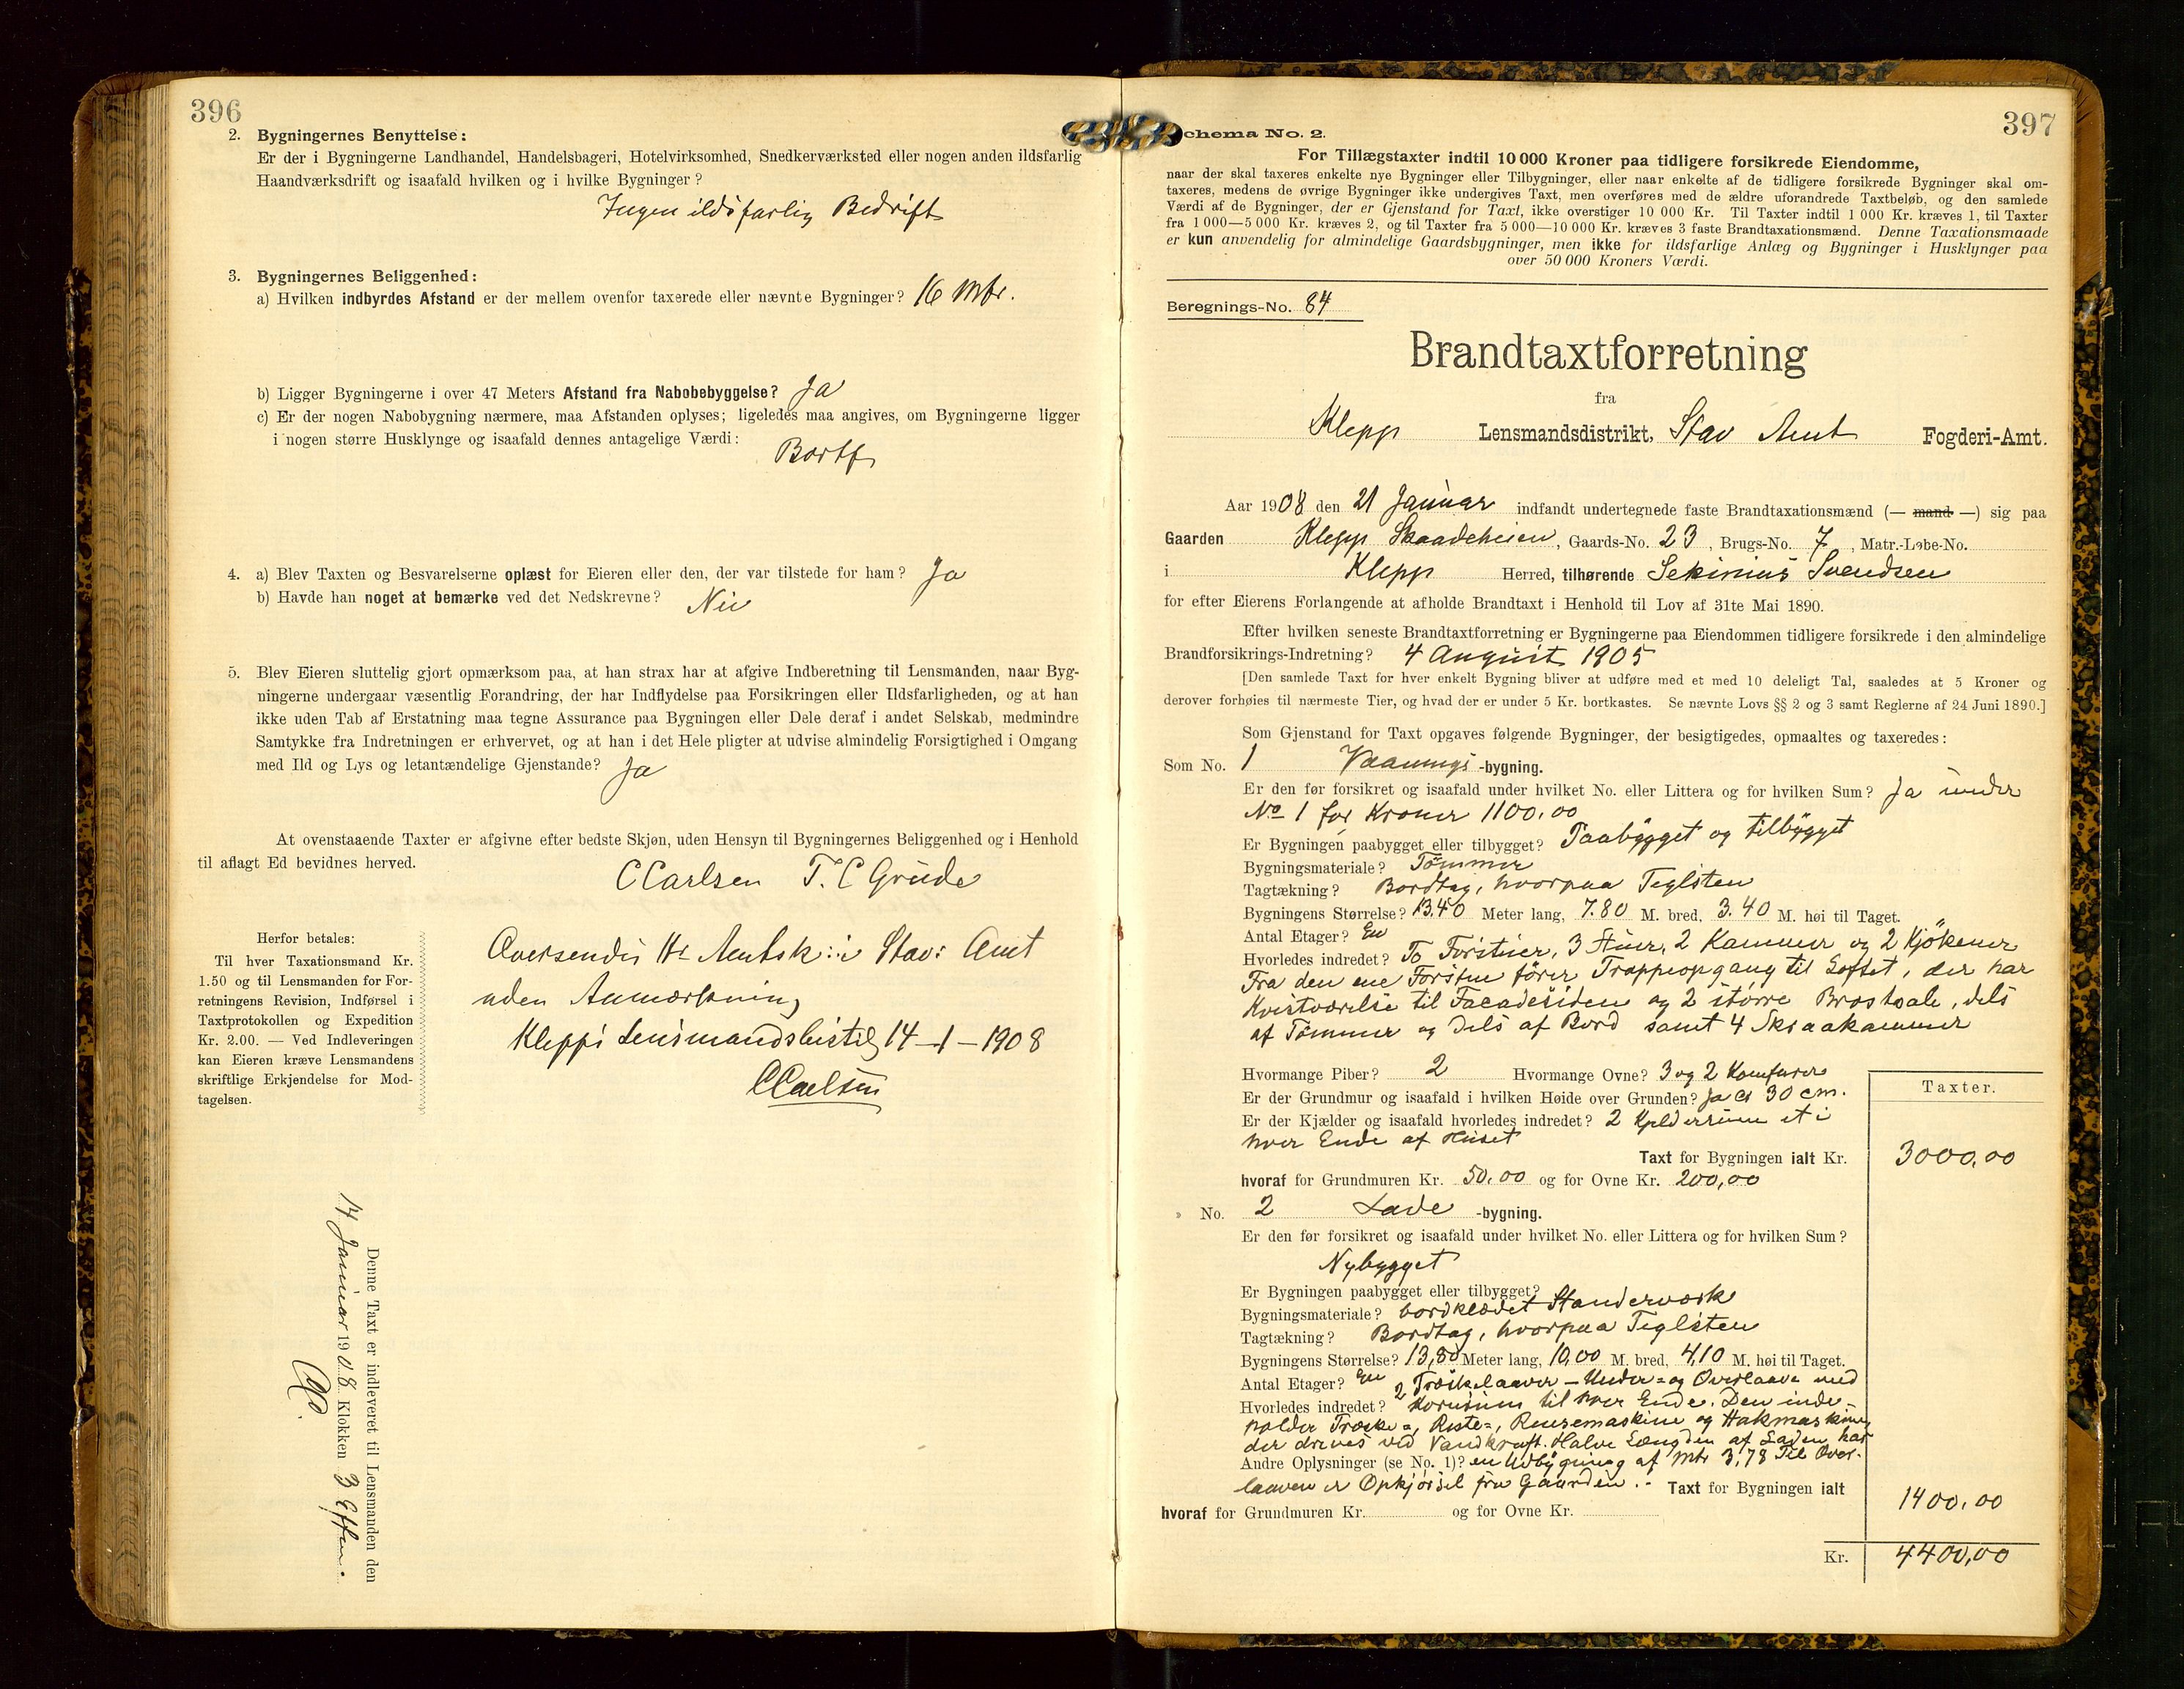 396
2. Bygningernes Benyttelse:
Er der i Bygningerne Landhandel, Handelsbageri, Hotelvirksomhed, Snedkerværksted eller nogen anden ildsfarlig
Haandværksdrift og isaafald hvilken og i hvilke Bygninger?
Ingen ildsfarlig Bedrift
3. Bygningernes Beliggenhed:
a) Hvilken indbyrdes Afstand er der mellem ovenfor taxerede eller nævnte Bygninger? 16 Mtr.
b) Ligger Bygningerne i over 47 Meters Afstand fra Nabobebyggelse? Ja
c) Er der nogen Nabobygning nærmere, maa Afstanden oplyses; ligeledes maa angives, om Bygningerne ligger
i nogen større Husklynge og isaafald dennes antagelige Værdi:
Bortf
4. a) Blev Taxten og Besvarelserne oplæst for Eieren eller den, der var tilstede for ham? Ja
b) Havde han noget at bemærke ved det Nedskrevne? Nei
5. Blev Eieren sluttelig gjort opmærksom paa, at han strax har at afgive Indberetning til Lensmanden, naar Byg-
ningerne undergaar væsentlig Forandring, der har Indflydelse paa Forsikringen eller Ildsfarligheden, og at han
ikke uden Tab af Erstatning maa tegne Assurance paa Bygningen eller Dele deraf i andet Selskab, medmindre
Samtykke fra Indretningen er erhvervet, og at han i det Hele pligter at udvise almindelig Forsigtighed i Omgang
med Ild og Lys og letantændelige Gjenstande? Ja
At ovenstaaende Taxter er afgivne efter bedste Skjøn, uden Hensyn til Bygningernes Beliggenhed og i Henhold
til aflagt Ed bevidnes herved.
CCarlsen T. C Grude
Herfor betales:
Til hver Taxationsmand Kr.
1.50 og til Lensmanden for For-
retningens Revision, Indførsel i
Taxtprotokollen og Expedition
Kr. 2.00. — Ved Indleveringen
kan Eieren kræve Lensmandens
skriftlige Erkjendelse for Mod-
tagelsen.
Oversendes Hr Amtsk: i Stav: Amt
uden Anmærkning
Klepps Lensmandsbestil 14-1-1908
CCarlsen
Denne Taxt er indleveret til Lensmanden den
14 Januar 1908 Klokken 3 Efterm.
397
Schema No. 2.
For Tillægstaxter indtil 10 000 Kroner paa tidligere forsikrede Eiendomme,
naar der skal taxeres enkelte nye Bygninger eller Tilbygninger, eller naar enkelte af de tidligere forsikrede Bygninger skal om-
taxeres, medens de øvrige Bygninger ikke undergives Taxt, men overføres med de ældre uforandrede Taxtbeløb, og den samlede
Værdi af de Bygninger, der er Gjenstand for Taxt, ikke overstiger 10 000 Kr. Til Taxter indtil 1 000 Kr. kræves 1, til Taxter
fra 1 000—5 000 Kr. kræves 2, og til Taxter fra 5 000—10 000 Kr. kræves 3 faste Brandtaxationsmænd. Denne Taxationsmaade
er kun anvendelig for almindelige Gaardsbygninger, men ikke for ildsfarlige Anlæg og Bygninger i Husklynger paa
over 50 000 Kroners Værdi.
Beregnings-No. 84
Brandtaxtforretning
fra
Klepp Lensmandsdistrikt, Stav Amt Fogderi-Amt.
Aar 1908 den 21 Januar indfandt undertegnede faste Brandtaxationsmænd (— mand —) sig paa
Gaarden Klepp Skaadeheien, Gaards-No. 23, Brugs-No. 7, Matr.-Løbe-No.
i Klepp Herred, tilhørende Sekinius Svendsen
for efter Eierens Forlangende at afholde Brandtaxt i Henhold til Lov af 31te Mai 1890.
Efter hvilken seneste Brandtaxtforretning er Bygningerne paa Eiendommen tidligere forsikrede i den almindelige
Brandforsikrings-Indretning? 4 August 1905
[Den samlede Taxt for hver enkelt Bygning bliver at udføre med et med 10 deleligt Tal, saaledes at 5 Kroner og
derover forhøies til nærmeste Tier, og hvad der er under 5 Kr. bortkastes. Se nævnte Lovs §§ 2 og 3 samt Reglerne af 24 Juni 1890.]
Som Gjenstand for Taxt opgaves følgende Bygninger, der besigtigedes, opmaaltes og taxeredes:
Som No. 1 Vaanings-bygning.
Er den før forsikret og isaafald under hvilket No. eller Littera og for hvilken Sum? Ja under
No 1 for Kroner 1100.00
Er Bygningen paabygget eller tilbygget? Paabygget og tilbygget
Bygningsmateriale? Tømmer
Tagtækning? Bordtag, hvorpaa Teglsten
Bygningens Størrelse? 13.40 Meter lang, 7.80 M. bred, 3.40 M. høi til Taget.
Antal Etager? En
Hvorledes indredet? To Forstuer, 3 Stuer, 2 Kammer og 2 Kjøkener
Fra den ene Forstue fører Trappeopgang til Loftet, der har
Kvistværelse til Facadesiden og 2 større Brostvale, dels
af Tømmer og dels af Bord samt 4 Skraakammer
Hvormange Piber? 2 Hvormange Ovne? 3 og 2 Komfurer
Er der Grundmur og isaafald i hvilken Høide over Grunden? Ja ca 30 cm.
Er der Kjælder og isaafald hvorledes indredet? 2 Kjelderrum et i
hver Ende af Huset
Taxter.
Taxt for Bygningen ialt Kr. 3000,00
hvoraf for Grundmuren Kr. 50.00 og for Ovne Kr. 200,00
» No. 2 Lade-bygning.
Er den før forsikret og isaafald under hvilket No. eller Littera og for hvilken Sum?
Nybygget
Er Bygningen paabygget eller tilbygget?
Bygningsmateriale? bordklædet Standerværk
Tagtækning? Bordtag, hvorpaa Teglsten
Bygningens Størrelse? 13,80 Meter lang, 10,00 M. bred, 4,10 M. høi til Taget.
Antal Etager? En 2 Træskelaaver — Under= og Overlaave med
Hvorledes indredet? Kornrum til hver Ende. Den inde-
holder Træske=, Riste=, Rensemaskine og Hakmaskine,
der drives ved Vandkraft. Halve Længden af Laden har
Andre Oplysninger (se No. 1)? en Udbygning af Mtr 3,78 Til Over-
laaven er Opkjørsel fra Gaarden.- Taxt for Bygningen ialt 1400,00
hvoraf for Grundmuren Kr. og for Ovne Kr.
Kr. 4400,00